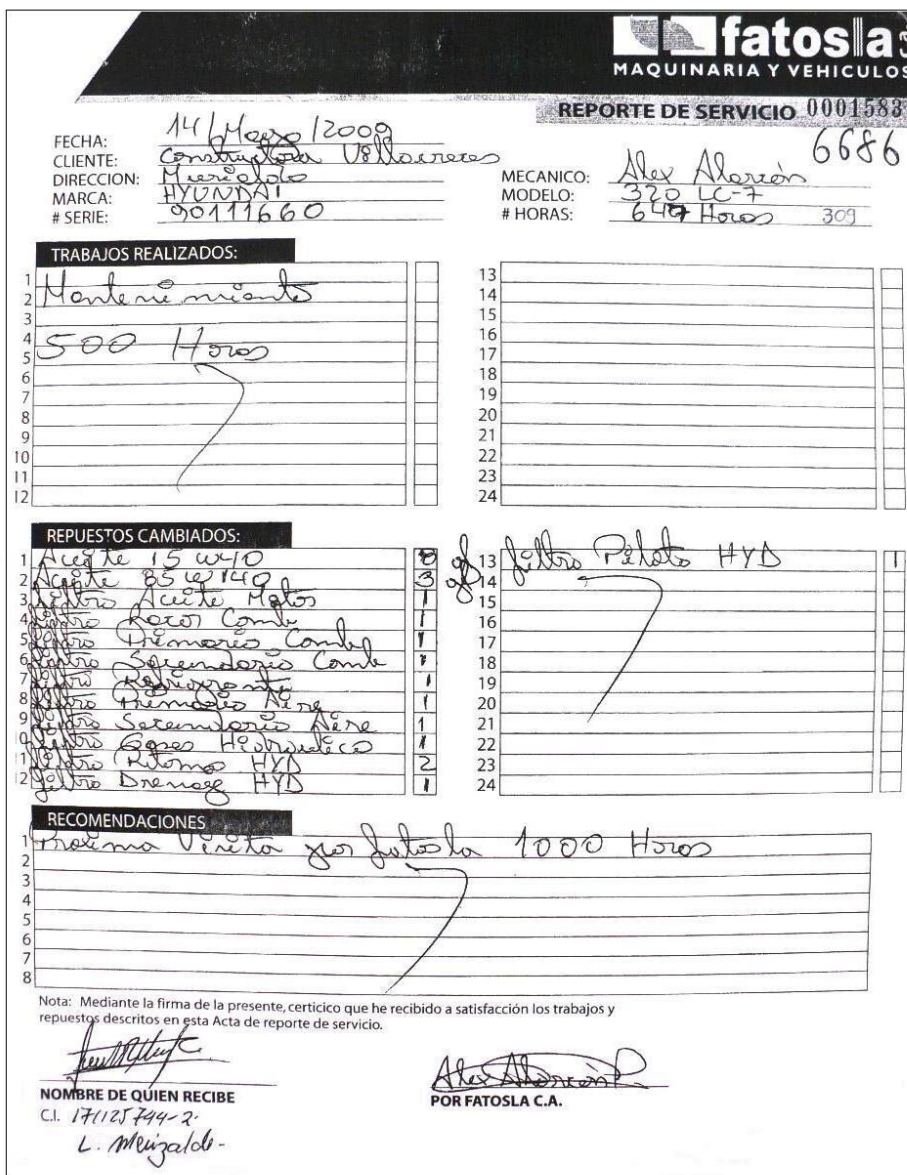 fatosla
MAQUINARIA Y VEHICULOS
REPORTE DE SERVICIO 0001583
6686
FECHA: 14/Marzo/2009
CLIENTE: Constructora
DIRECCION:
MARCA: HYUNDAI
# SERIE: 90111660
MECANICO: Alex Alarcón
MODELO: 320 LC-7
# HORAS: 647 Horas 309
TRABAJOS REALIZADOS:
1
2 Mantenimiento
3
4
5 500 Horas
6
7
8
9
10
11
12
13
14
15
16
17
18
19
20
21
22
23
24
REPUESTOS CAMBIADOS:
1 Aceite 15w40
2 Aceite 85w140 3
3 filtro Aceite Motor 1
4 filtro Racor Comb 1
5 filtro Primario Comb 1
6 filtro Secundario Comb 1
7 filtro Refrigerante 1
8 filtro Primario Aire 1
9 filtro Secundario Aire 1
10 filtro Gases Hidraulico 1
11 filtro Retorno HYD 2
12 filtro Drenage HYD 1
13 filtro Piloto HYD 1
14
15
16
17
18
19
20
21
22
23
24
RECOMENDACIONES
1 Proxima Visita por fatosla 1000 Horas
2
3
4
5
6
7
8
Nota: Mediante la firma de la presente, certicico que he recibido a satisfacción los trabajos y
repuestos descritos en esta Acta de reporte de servicio.
Alex Alarcón P.
NOMBRE DE QUIEN RECIBE
POR FATOSLA C.A.
C.I. 171125744-2.
L. Merizalde-